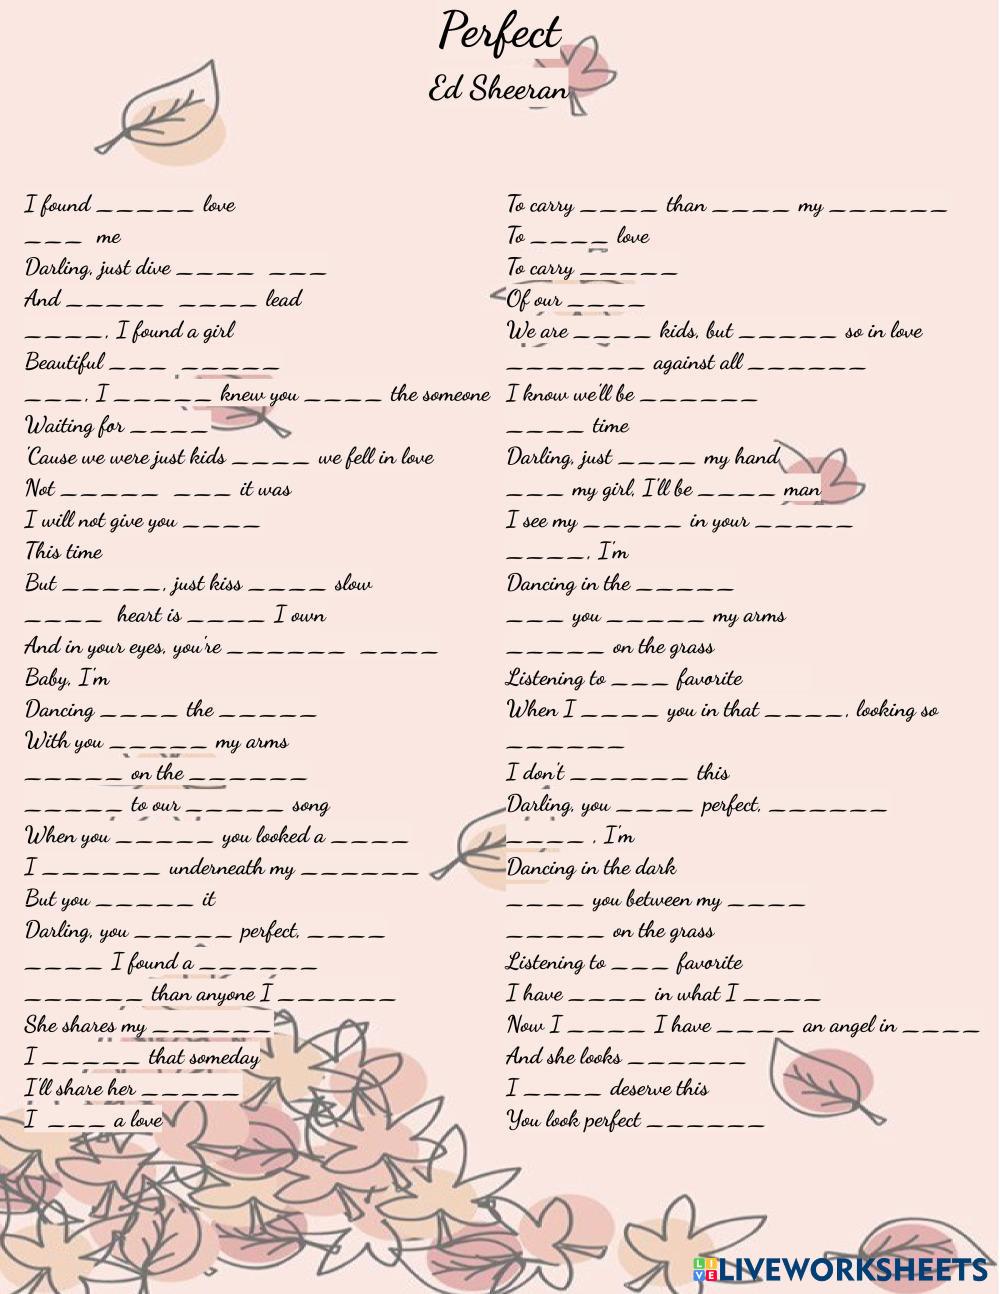 Perfect
Ed Sheeran
I found _____ love
___ me
Darling, just dive ____ ___
And _____ ____ lead
____, I found a girl
Beautiful ___ _____
___, I _____ knew you ____ the someone
Waiting for ____
'Cause we were just kids ____ we fell in love
Not _____ ___ it was
I will not give you ____
This time
But _____, just kiss ____ slow
____ heart is ____ I own
And in your eyes, you're ______ ____
Baby, I'm
Dancing ____ the _____
With you _____ my arms
_____ on the ______
_____ to our _____ song
When you _____ you looked a ____
I ______ underneath my ______
But you _____ it
Darling, you _____ perfect, ____
____ I found a ______
______ than anyone I ______
She shares my ______
I _____ that someday
I'll share her _____
I ___ a love
To carry ____ than ____ my ______
To ____ love
To carry _____
Of our ____
We are ____ kids, but _____ so in love
_______ against all ______
I know we'll be ______
____ time
Darling, just ____ my hand
___ my girl, I'll be ____ man
I see my _____ in your _____
____, I'm
Dancing in the _____
___ you _____ my arms
_____ on the grass
Listening to ___ favorite
When I ____ you in that ____, looking so
______
I don't ______ this
Darling, you ____ perfect, ______
____ , I'm
Dancing in the dark
____ you between my ____
_____ on the grass
Listening to ___ favorite
I have ____ in what I ____
Now I ____ I have ____ an angel in ____
And she looks ______
I ____ deserve this
You look perfect ______
LIVE LIVEWORKSHEETS